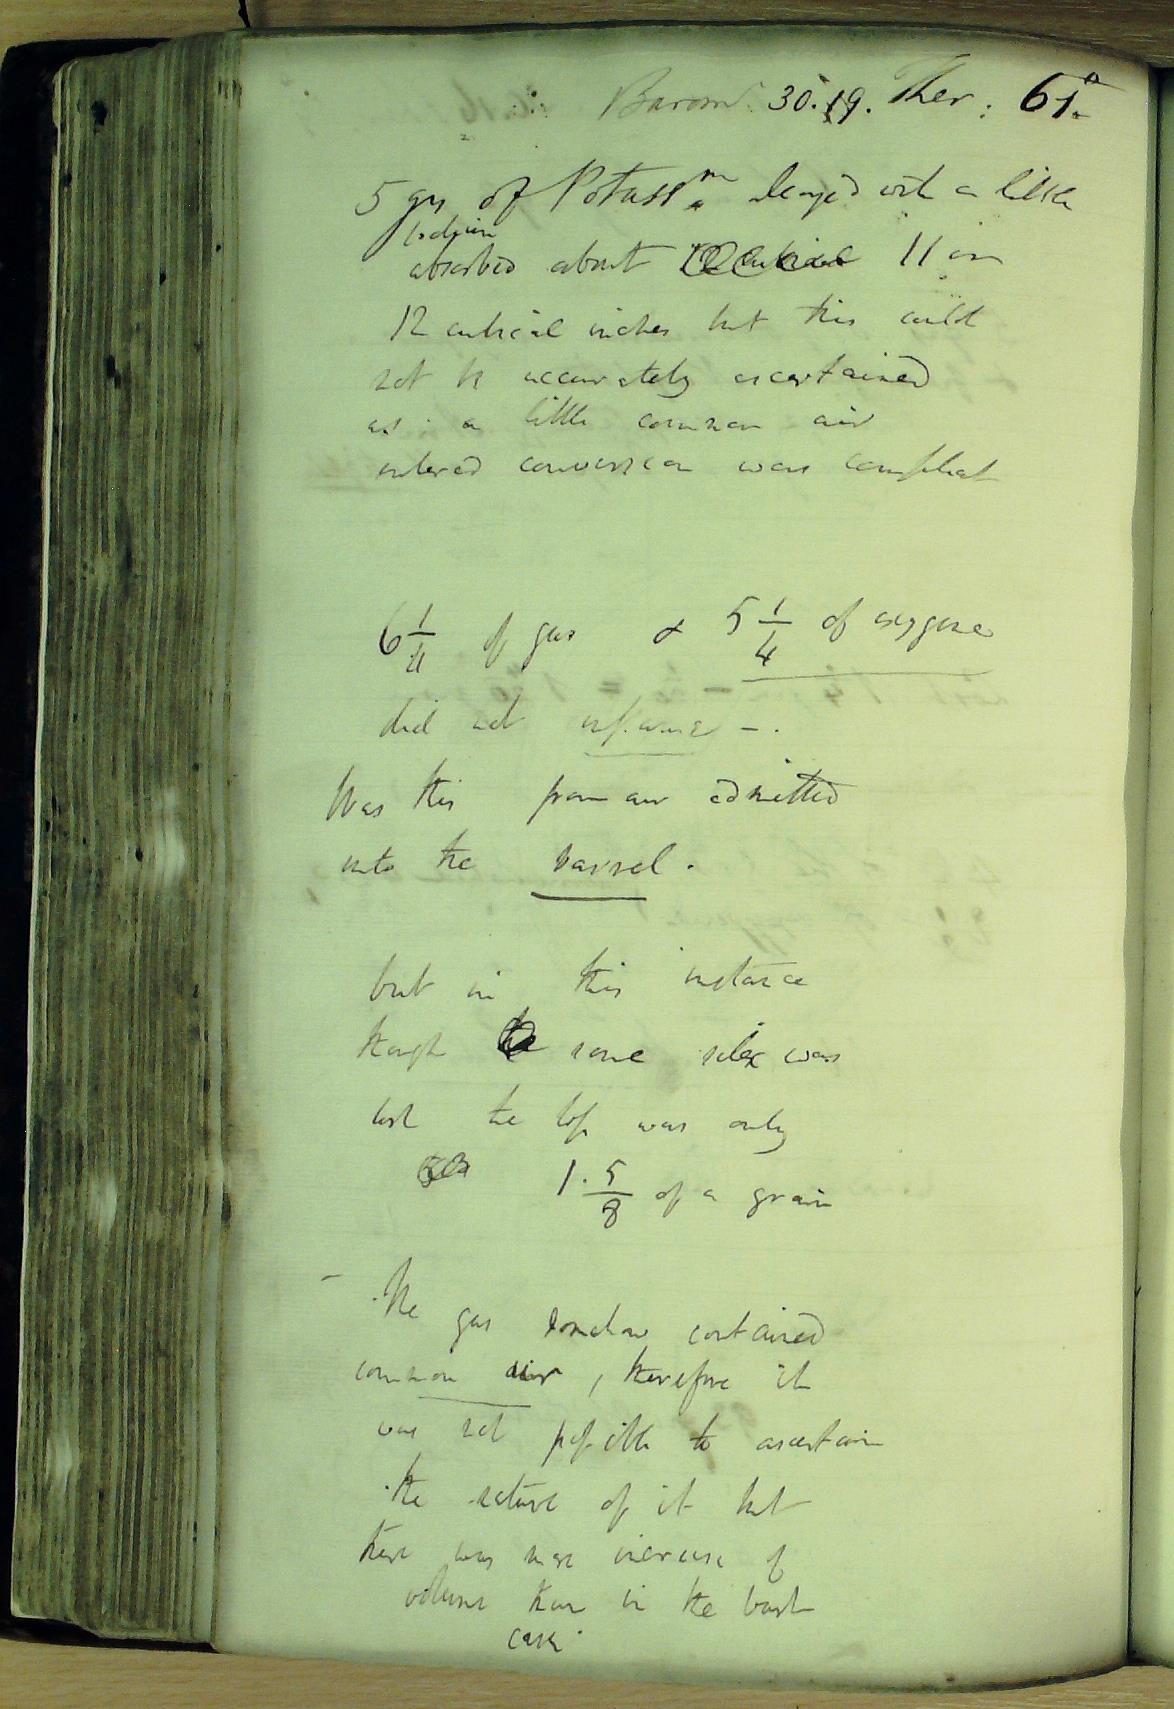 Barom: 30.19. Ther: 61°
5 grs of Potassm alloyed with a little
sodium
absorbed about 11 or
12 cubical inches but this could
not be accurately ascertained
as a little common air
entered conversion was compleat
6 1/4 of gas & 5 1/4 of oxygene
did not inflame -.
Was this from air admitted
into the barrel.
but in this instance
though some silex was
lost the loss was only
1. 5/8 of a grain
- The gas somehow contained
common air, therefore it
was not possible to ascertain
the nature of it but
there was more increase of
volume than in the last
case.